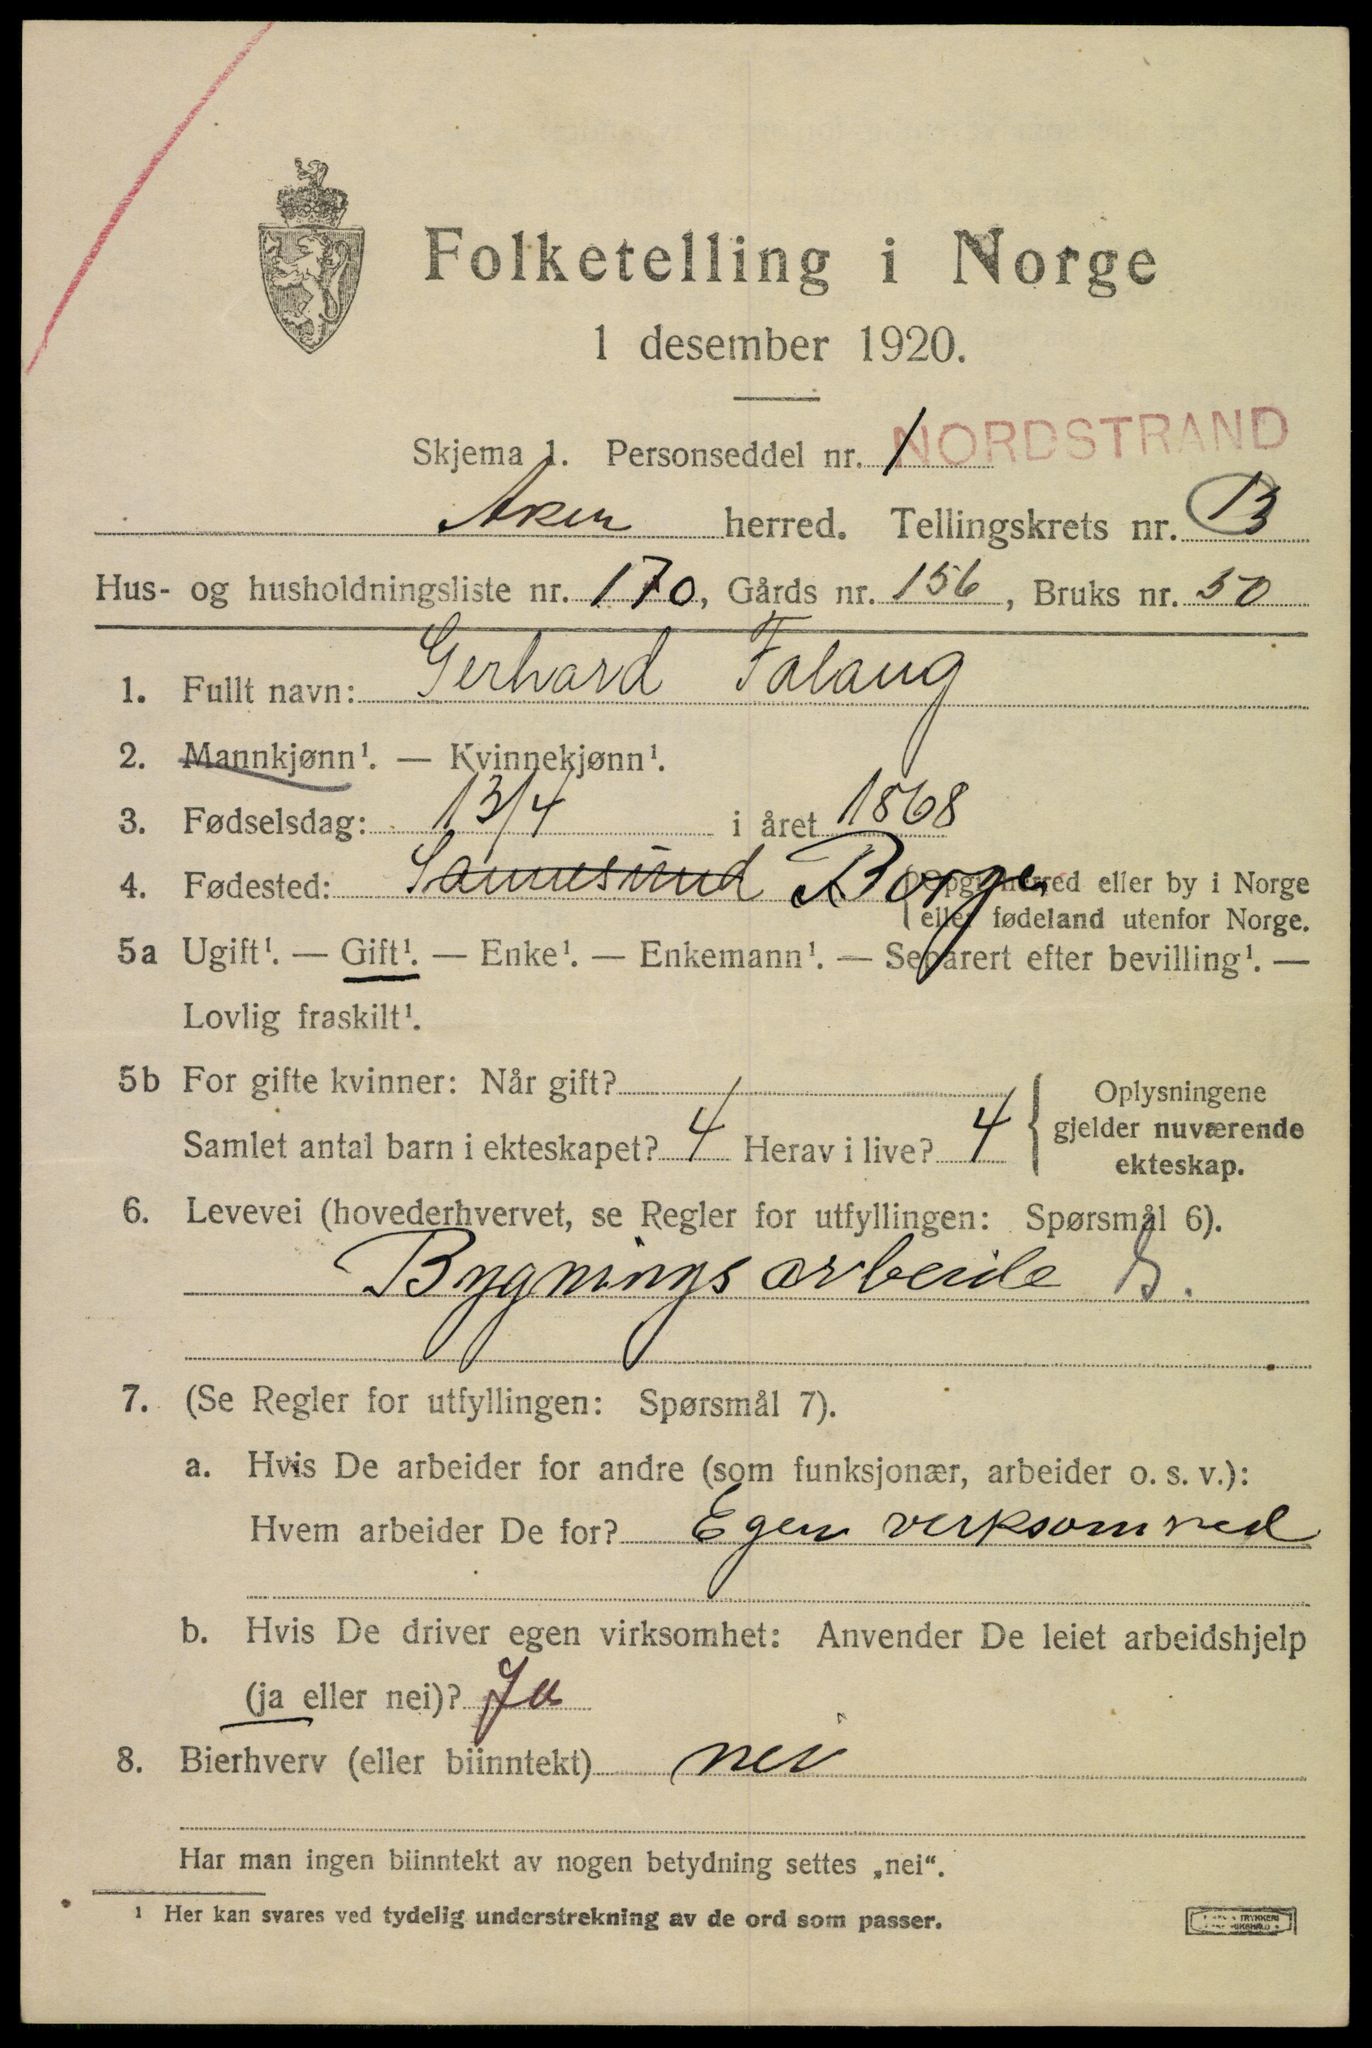 Folketelling i Norge
1 desember 1920.
Skjema 1. Personseddel nr. 1 NORDSTRAND
Aker herred. Tellingskrets nr. 13
Hus- og husholdningsliste nr. 170, Gårds nr. 156, Bruks nr. 50
1. Fullt navn: Gerhard Falang
2. Mannkjønn¹. — Kvinnekjønn¹.
3. Fødselsdag: 13/4 i året 1868
4. Fødested: Sannesund Borge {Opgi herred eller by i Norge
eller fødeland utenfor Norge.
5a Ugift¹. — Gift¹. — Enke¹. — Enkemann¹. — Separert efter bevilling¹. —
Lovlig fraskilt¹.
5b For gifte kvinner: Når gift?
Samlet antal barn i ekteskapet? 4 Herav i live? 4
{ Oplysningene
gjelder nuværende
ekteskap.
6. Levevei (hovederhvervet, se Regler for utfyllingen: Spørsmål 6).
Bygningsarbeide
7. (Se Regler for utfyllingen: Spørsmål 7).
a. Hvis De arbeider for andre (som funksjonær, arbeider o. s. v.):
Hvem arbeider De for? Egen verksomved
b. Hvis De driver egen virksomhet: Anvender De leiet arbeidshjelp
(ja eller nei)? Ja
8. Bierhverv (eller biinntekt) nei
Har man ingen biinntekt av nogen betydning settes „nei“.
¹ Her kan svares ved tydelig understrekning av de ord som passer.